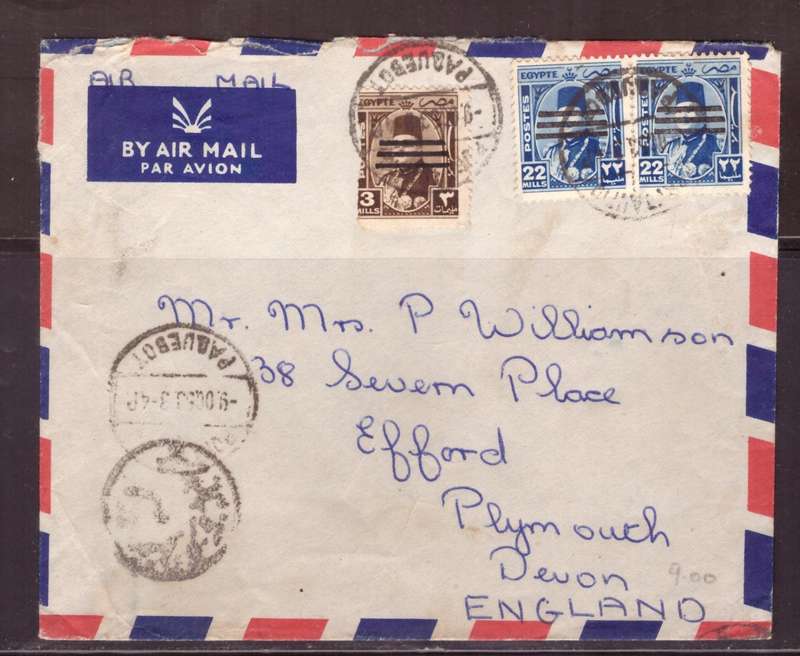 AIR MAIL
BY AIR MAIL
PAR AVION
PAQUEBOT
EGYPTE مصر
3
MILLS
٣
مليمات
EGYPTE مصر
POSTES
22
MILLS
٢٢
مليما
EGYPTE مصر
POSTES
22
MILLS
٢٢
مليما
Mr. Mrs. P Williamson
38 Severn Place
Efford
Plymouth
Devon
ENGLAND
9.00
PAQUEBOT
-9.OC 53 3-4P